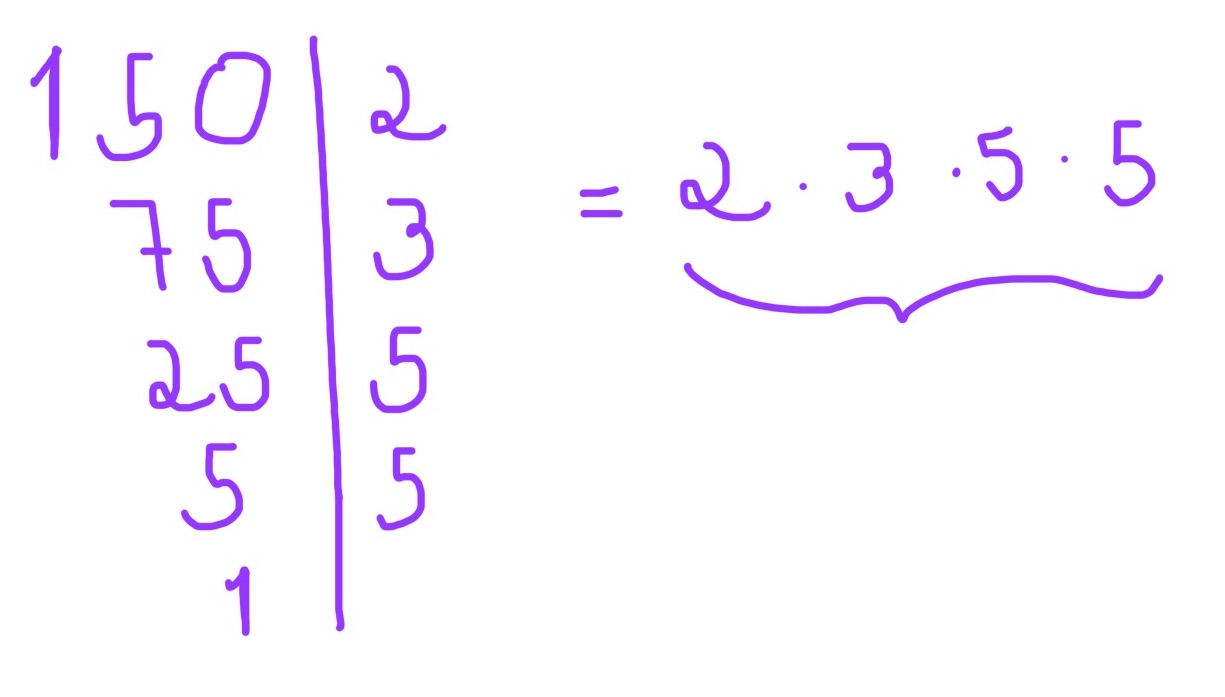 150 | 2
75 | 3
25 | 5
5 | 5
1 |
= 2 · 3 · 5 · 5